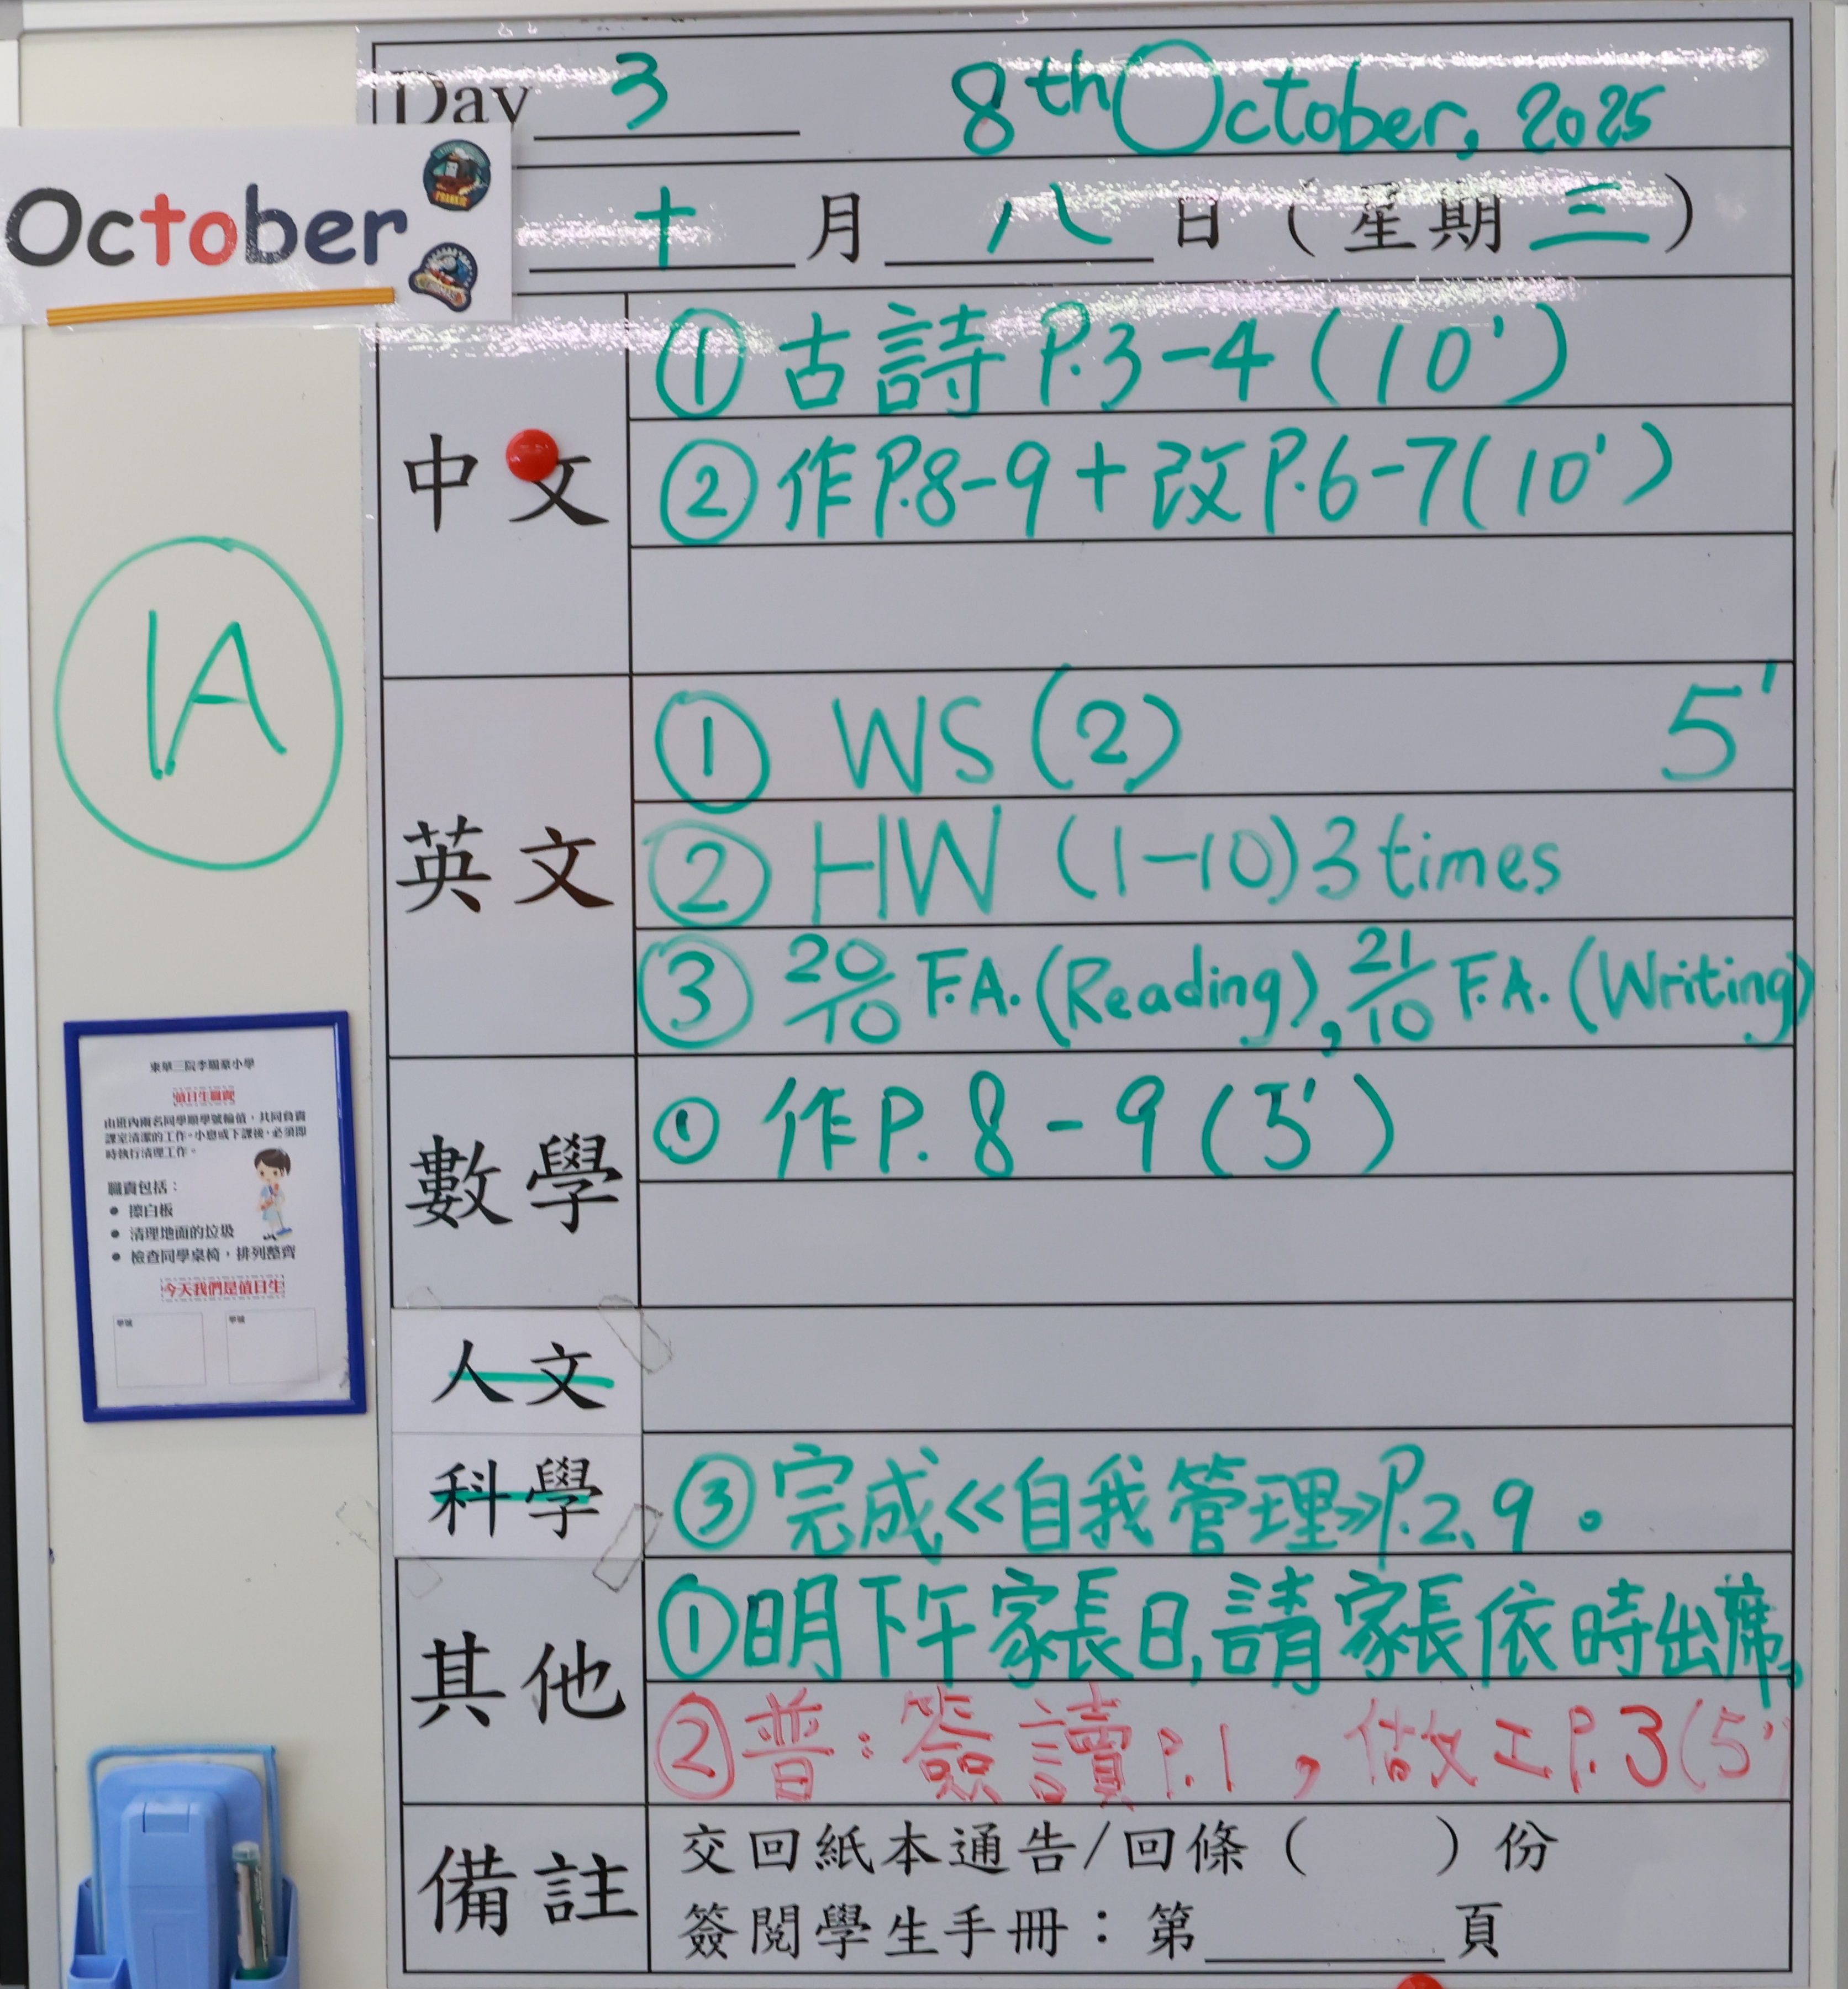 Day 3 8th October, 2025
October
十 月 八 日 ( 星 期 三 )
中 文
① 古詩 P.3-4 ( 10' )
② 作 P.8-9 + 改 P.6-7 ( 10' )
1A
英 文
① WS (2) 5'
② HW (1-10) 3 times
③ 20/10 F.A. (Reading), 21/10 F.A. (Writing)
數 學
① 作 P. 8 - 9 ( 5' )
人 文
科 學
③ 完成《自我管理》P.2、9。
其 他
① 明下午家長日,請家長依時出席。
② 普:簽讀 P.1 , 做工 P.3 (5')
備 註
交回紙本通告/回條 ( ) 份
簽閱學生手冊:第 頁
值日生職責
由班內兩名同學順學號輪值,共同負責
課室清潔的工作。小息或下課後,必須即
時執行清理工作。
職責包括:
● 擦白板
● 清理地面的垃圾
● 檢查同學桌椅,排列整齊
今天我們是值日生
學號 學號